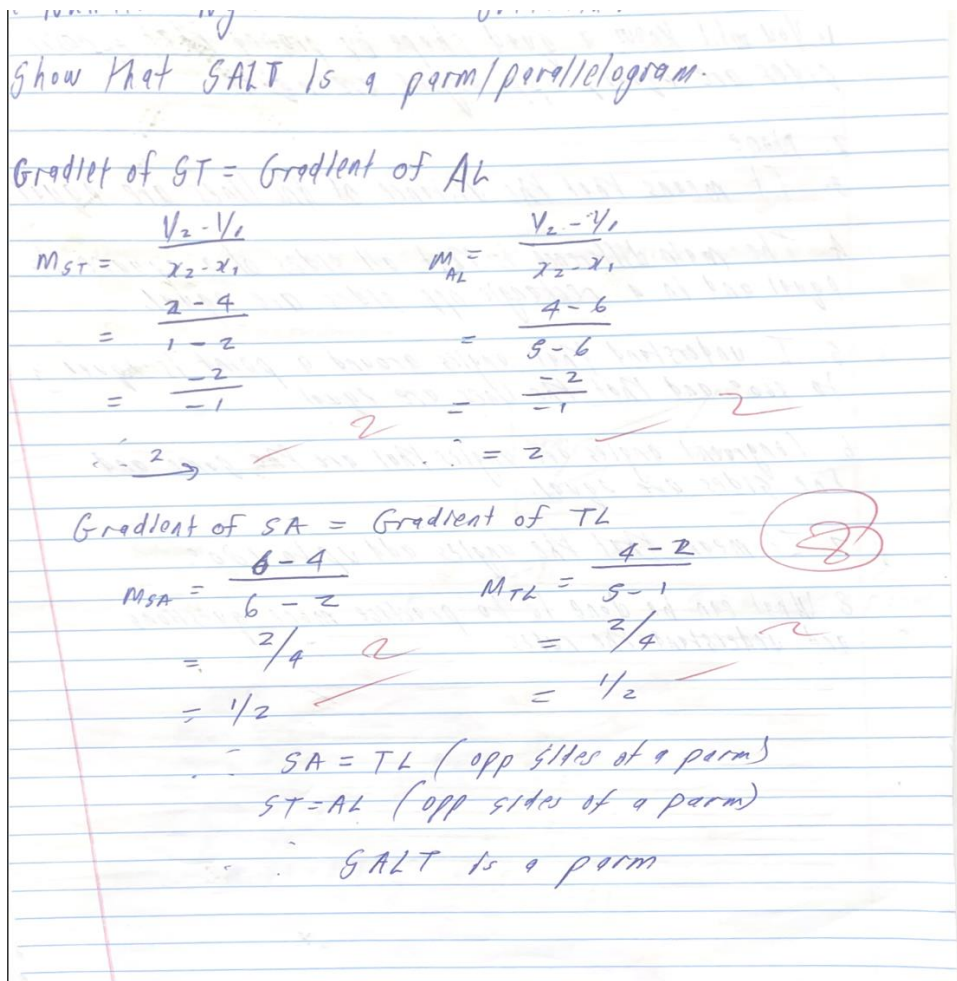 Show that SALT is a parm/parallelogram.
Gradiet of ST = Gradient of AL
mST = y2 - y1 / x2 - x1   mAL = y2 - y1 / x2 - x1
= 2 - 4 / 1 - 2   = 4 - 6 / 5 - 6
= -2 / -1   = -2 / -1
∴ 2   ∴ = 2
2   2
Gradient of SA = Gradient of TL
8
mSA = 6 - 4 / 6 - 2   mTL = 4 - 2 / 5 - 1
= 2/4   2   = 2/4   2
= 1/2   = 1/2
∴ SA = TL (opp sides of a parm)
ST = AL (opp sides of a parm)
∴ SALT is a parm